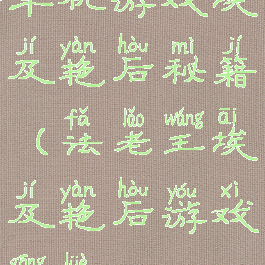 单机游戏埃
jí yàn hòu mì jí
及艳后秘籍
fǎ lǎo wáng āi
(法老王埃
jí yàn hòu yóu xì
及艳后游戏
gōng lüè